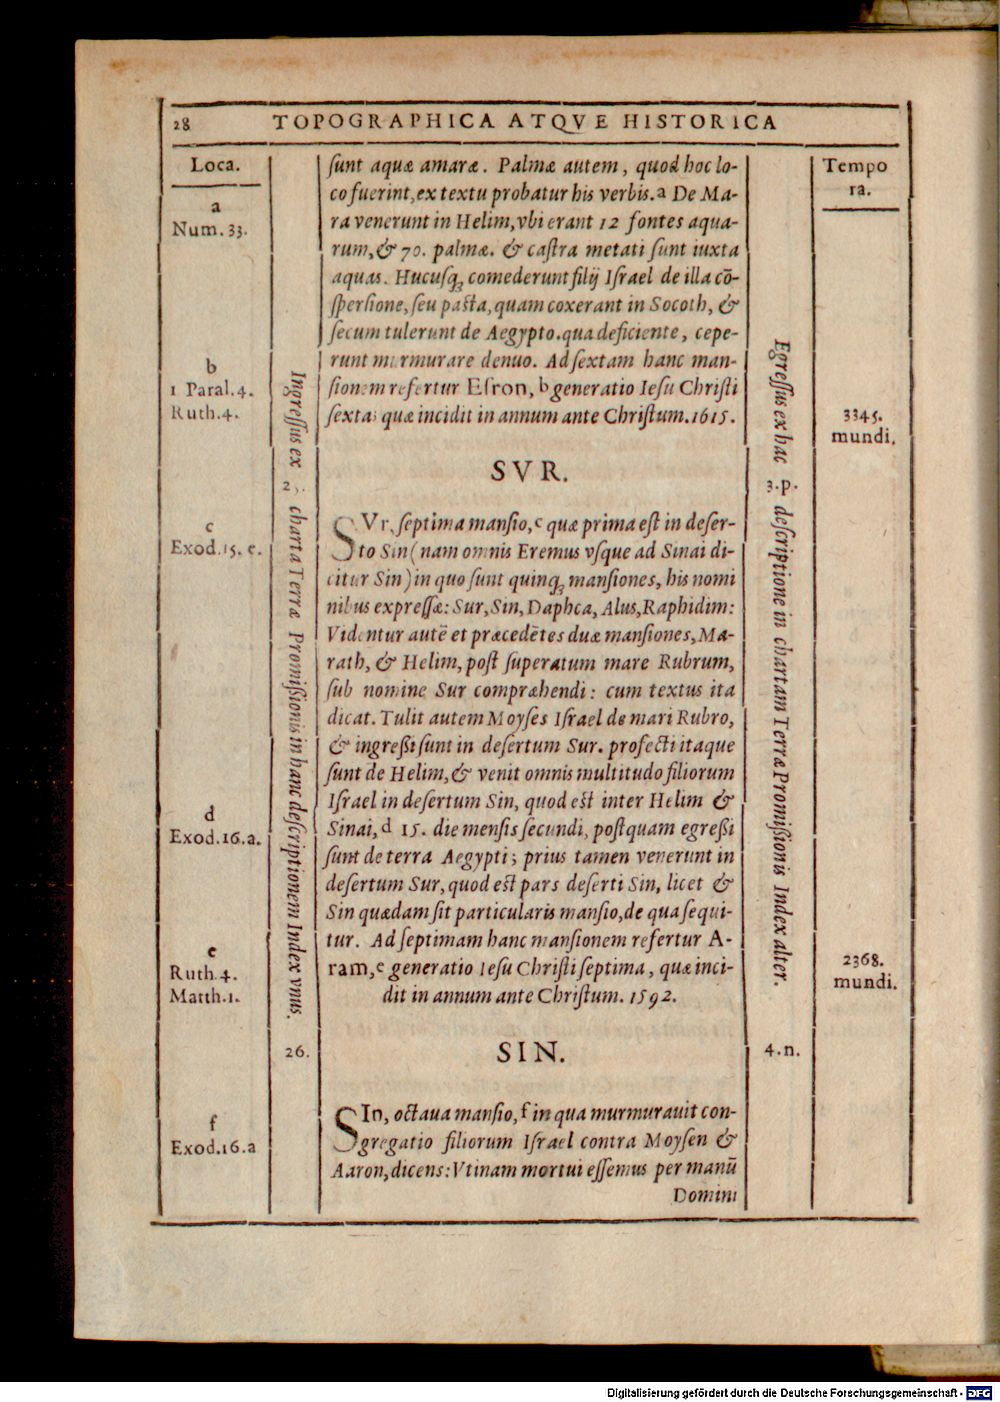 28 TOPOGRAPHICA ATQVE HISTORICA
Loca.
a
Num. 33.
b
1 Paral. 4.
Ruth. 4.
c
Exod. 15. e.
d
Exod. 16. a.
e
Ruth. 4.
Matth. 1.
f
Exod. 16. a
Ingreſſus ex charta Terræ Promißionis in hanc deſcriptionem Index vnus.
26.
ſunt aquæ amaræ. Palmæ autem, quod hoc lo-
co fuerint, ex textu probatur his verbis. a De Ma-
ra venerunt in Helim, vbi erant 12 fontes aqua-
rum, & 70. palmæ. & caſtra metati ſunt iuxta
aquas. Hucuſqꝫ comederunt filij Iſrael de illa cō-
ſperſione, ſeu paſta, quam coxerant in Socoth, &
ſecum tulerunt de Aegypto. qua deficiente, cepe-
runt murmurare denuo. Ad ſextam hanc man-
ſionem refertur Eſron, b generatio Ieſu Chriſti
ſexta; quæ incidit in annum ante Chriſtum. 1615.
SVR.
SVr, ſeptima manſio, c quæ prima eſt in deſer-
to Sin (nam omnis Eremus vſque ad Sinai di-
citur Sin) in quo ſunt quinqꝫ manſiones, his nomi
nibus expreſſæ: Sur, Sin, Daphca, Alus, Raphidim:
Videntur autē et præcedētes duæ manſiones, Ma-
rath, & Helim, poſt ſuperatum mare Rubrum,
ſub nomine Sur compræhendi: cum textus ita
dicat. Tulit autem Moyſes Iſrael de mari Rubro,
& ingreßi ſunt in deſertum Sur. profecti itaque
ſunt de Helim, & venit omnis multitudo filiorum
Iſrael in deſertum Sin, quod eſt inter Helim &
Sinai, d 15. die menſis ſecundi, poſtquam egreßi
ſunt de terra Aegypti; prius tamen venerunt in
deſertum Sur, quod eſt pars deſerti Sin, licet &
Sin quædam ſit particularis manſio, de qua ſequi-
tur. Ad ſeptimam hanc manſionem refertur A-
ram, e generatio Ieſu Chriſti ſeptima, quæ inci-
dit in annum ante Chriſtum. 1592.
SIN.
SIn, octaua manſio, f in qua murmurauit con-
gregatio filiorum Iſrael contra Moyſen &
Aaron, dicens: Vtinam mortui eſſemus per manū
Domini
Egreſſus ex hac deſcriptione in chartam Terræ Promißionis Index alter.
3. p.
4. n.
Tempo
ra.
3345.
mundi.
2368.
mundi.
Digitalisierung gefördert durch die Deutsche Forschungsgemeinschaft - DFG